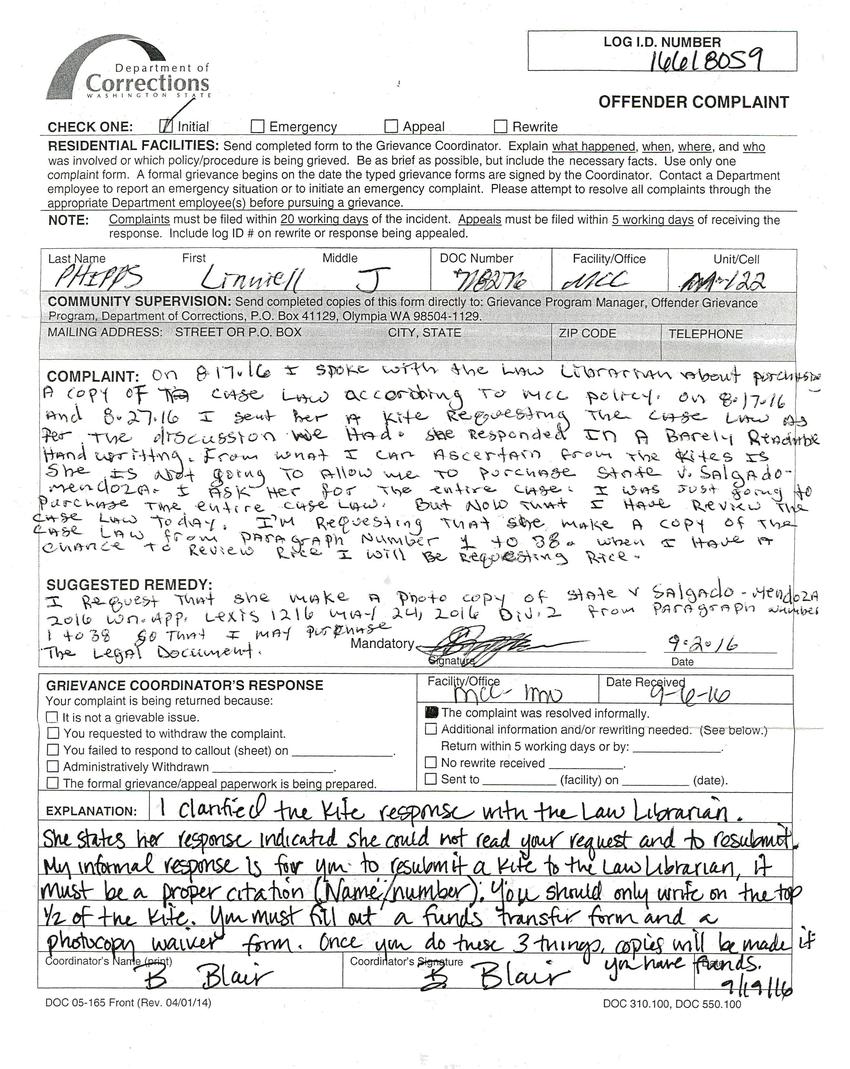 Department of
Corrections
WASHINGTON STATE
LOG I.D. NUMBER
16618059
OFFENDER COMPLAINT
CHECK ONE: Initial Emergency Appeal Rewrite
RESIDENTIAL FACILITIES: Send completed form to the Grievance Coordinator. Explain what happened, when, where, and who
was involved or which policy/procedure is being grieved. Be as brief as possible, but include the necessary facts. Use only one
complaint form. A formal grievance begins on the date the typed grievance forms are signed by the Coordinator. Contact a Department
employee to report an emergency situation or to initiate an emergency complaint. Please attempt to resolve all complaints through the
appropriate Department employee(s) before pursuing a grievance.
NOTE: Complaints must be filed within 20 working days of the incident. Appeals must be filed within 5 working days of receiving the
response. Include log ID # on rewrite or response being appealed.
Last Name First Middle DOC Number Facility/Office Unit/Cell
PHIPPS Linniell J 78276 MCC 122
COMMUNITY SUPERVISION: Send completed copies of this form directly to: Grievance Program Manager, Offender Grievance
Program, Department of Corrections, P.O. Box 41129, Olympia WA 98504-1129.
MAILING ADDRESS: STREET OR P.O. BOX CITY, STATE ZIP CODE TELEPHONE
COMPLAINT: on 8-17-16 I spoke with the Law Librarian about purchase
A copy of case law according to MCC policy. on 8-17-16
And 8-27-16 I sent her A Kite Requesting The case Law As
Per The discussion we Had. she responded In A Barely Readable
Hand writting. From what I can Ascertain from the Kites Is
She Is Not going To Allow me To purchase State v. Salgado-
mendoza. I ask Her for The entire case. I was just going to
Purchase The entire case Law. But Now That I Have Review The
case Law Today. I'm Requesting That she make A copy of The
case Law from paragraph Number 1 to 38. when I Have A
chance to Review Rice I will Be requesting Rice.
SUGGESTED REMEDY:
I Request That she make A Photo copy of State v Salgado-Mendoza
2016 Wn.App. Lexis 1216 May 24, 2016 Div. 2 from Paragraph number
1 to 38 so that I may purchase
The Legal Document.
Mandatory
Signature
9-2-16
Date
GRIEVANCE COORDINATOR'S RESPONSE
Your complaint is being returned because:
It is not a grievable issue.
You requested to withdraw the complaint.
You failed to respond to callout (sheet) on ____.
Administratively Withdrawn ____.
The formal grievance/appeal paperwork is being prepared.
Facility/Office Date Received
MCC- 9-6-16
The complaint was resolved informally.
Additional information and/or rewriting needed. (See below.)
Return within 5 working days or by: ____.
No rewrite received ____
Sent to ____ (facility) on ____ (date).
EXPLANATION: I clarified the Kite response with the Law Librarian.
She states her response indicated she could not read your request and to resubmit.
My informal response is for you to resubmit a kite to the Law Librarian, it
must be a proper citation (Name/number). You should only write on the top
1/2 of the Kite. You must fill out a funds transfer form and a
photocopy waiver form. Once you do these 3 things, copies will be made if
you have funds.
Coordinator's Name (print) Coordinator's Signature
B Blair B Blair
9/19/16
DOC 05-165 Front (Rev. 04/01/14) DOC 310.100, DOC 550.100